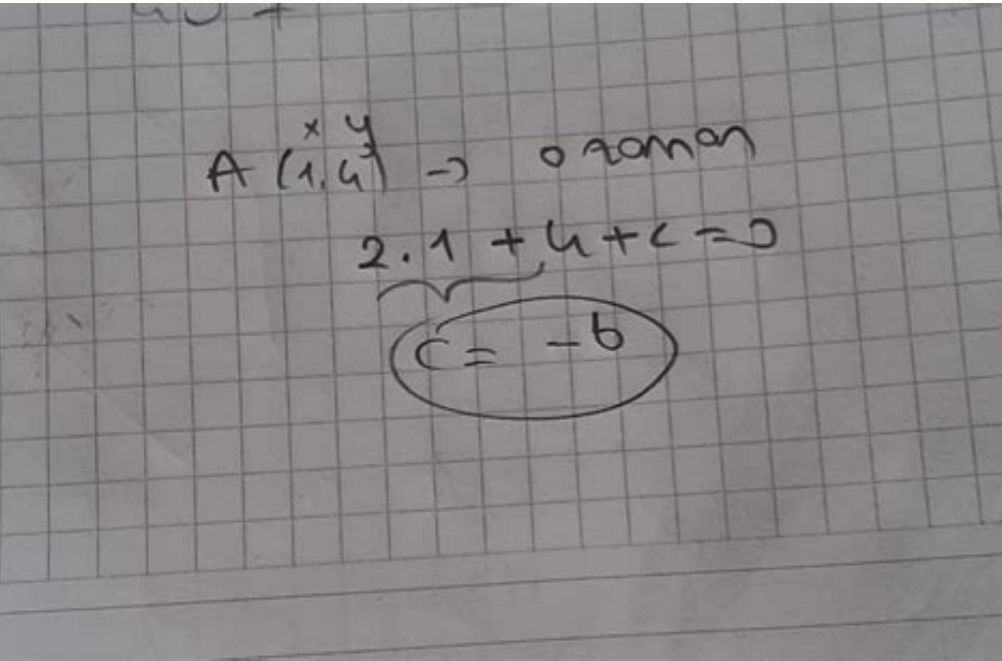 x y
A (1,4) → o zaman
2.1 + 4 + c = 0
c = -6